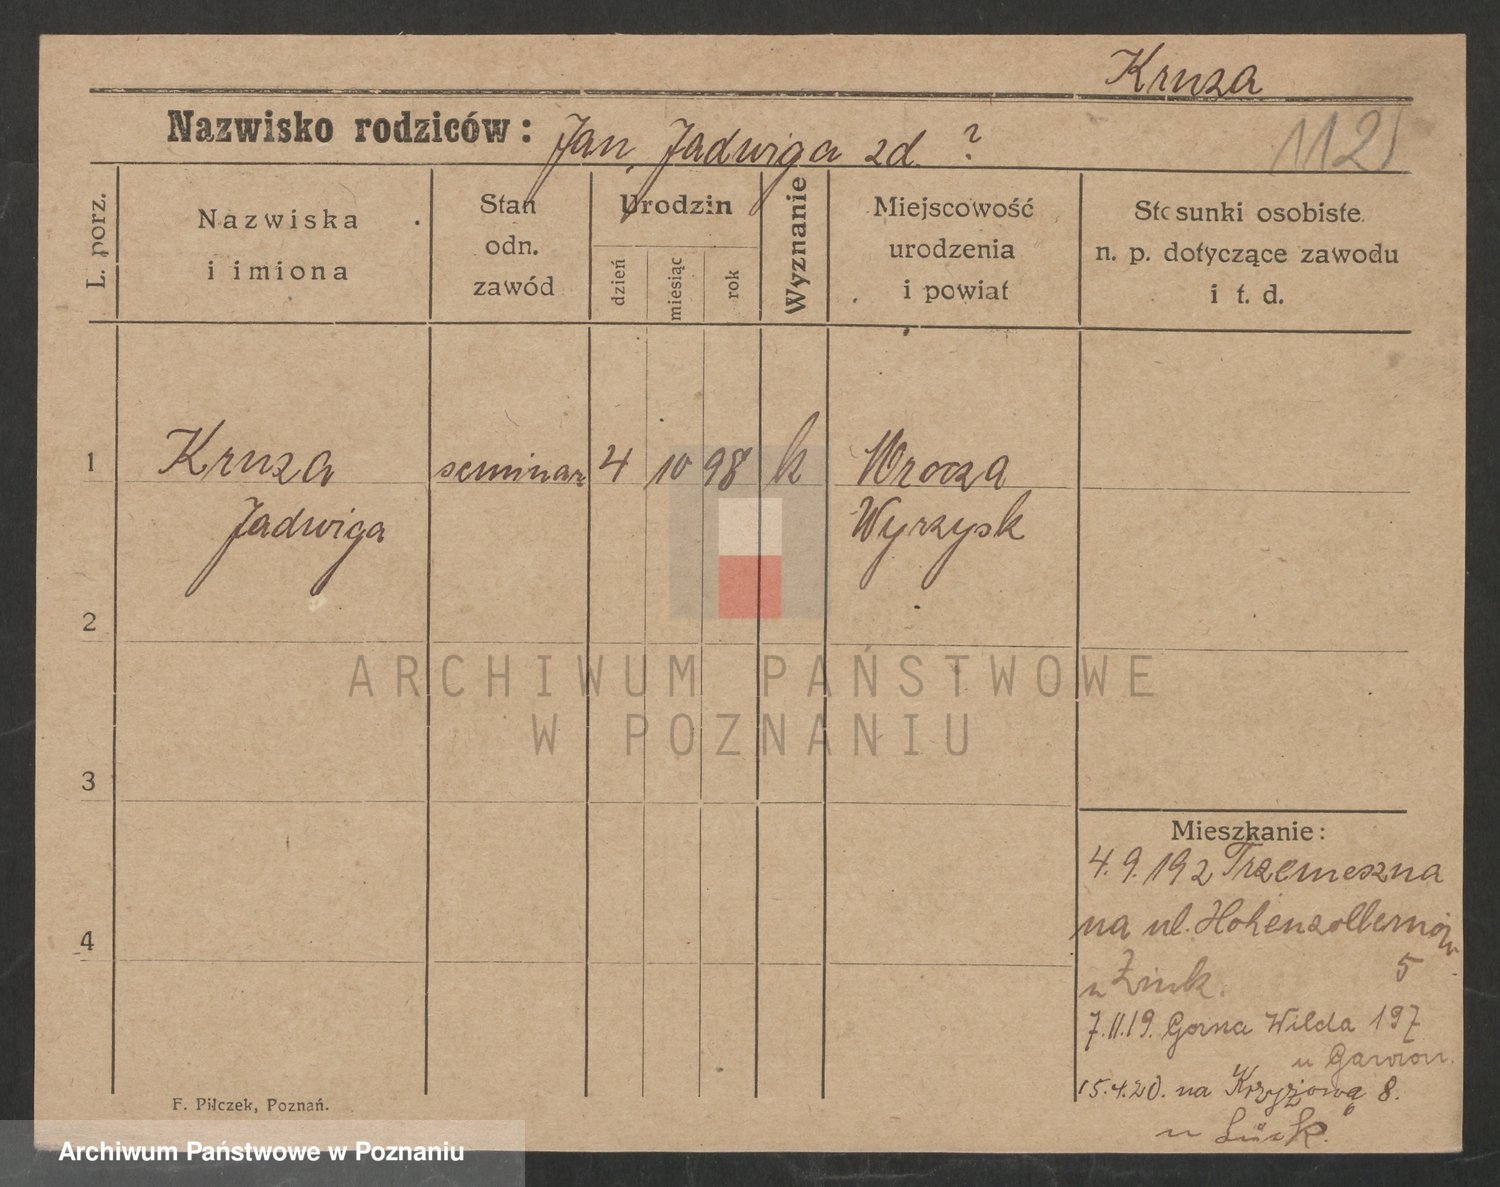 Kruza
Nazwisko rodziców: Jan, Jadwiga zd. ?
1121
L. porz.
Nazwiska i imiona
Stan odn. zawód
Urodzin
dzień
miesiąc
rok
Wyznanie
Miejscowość urodzenia i powiat
Stosunki osobiste n. p. dotyczące zawodu i t. d.
1 Kruza seminar 4 10 98 k Wrocza
Jadwiga Wyrzysk
2
3
4
ARCHIWUM PAŃSTWOWE
W POZNANIU
Mieszkanie:
4.9.19 z Trzemeszna
na ul. Hohenzollernów
5
u Zink.
7.11.19. Gorna Wilda 197
u Gawron.
15.4.20. na Krzyżową 8.
u
F. Pilczek, Poznań.
Archiwum Państwowe w Poznaniu